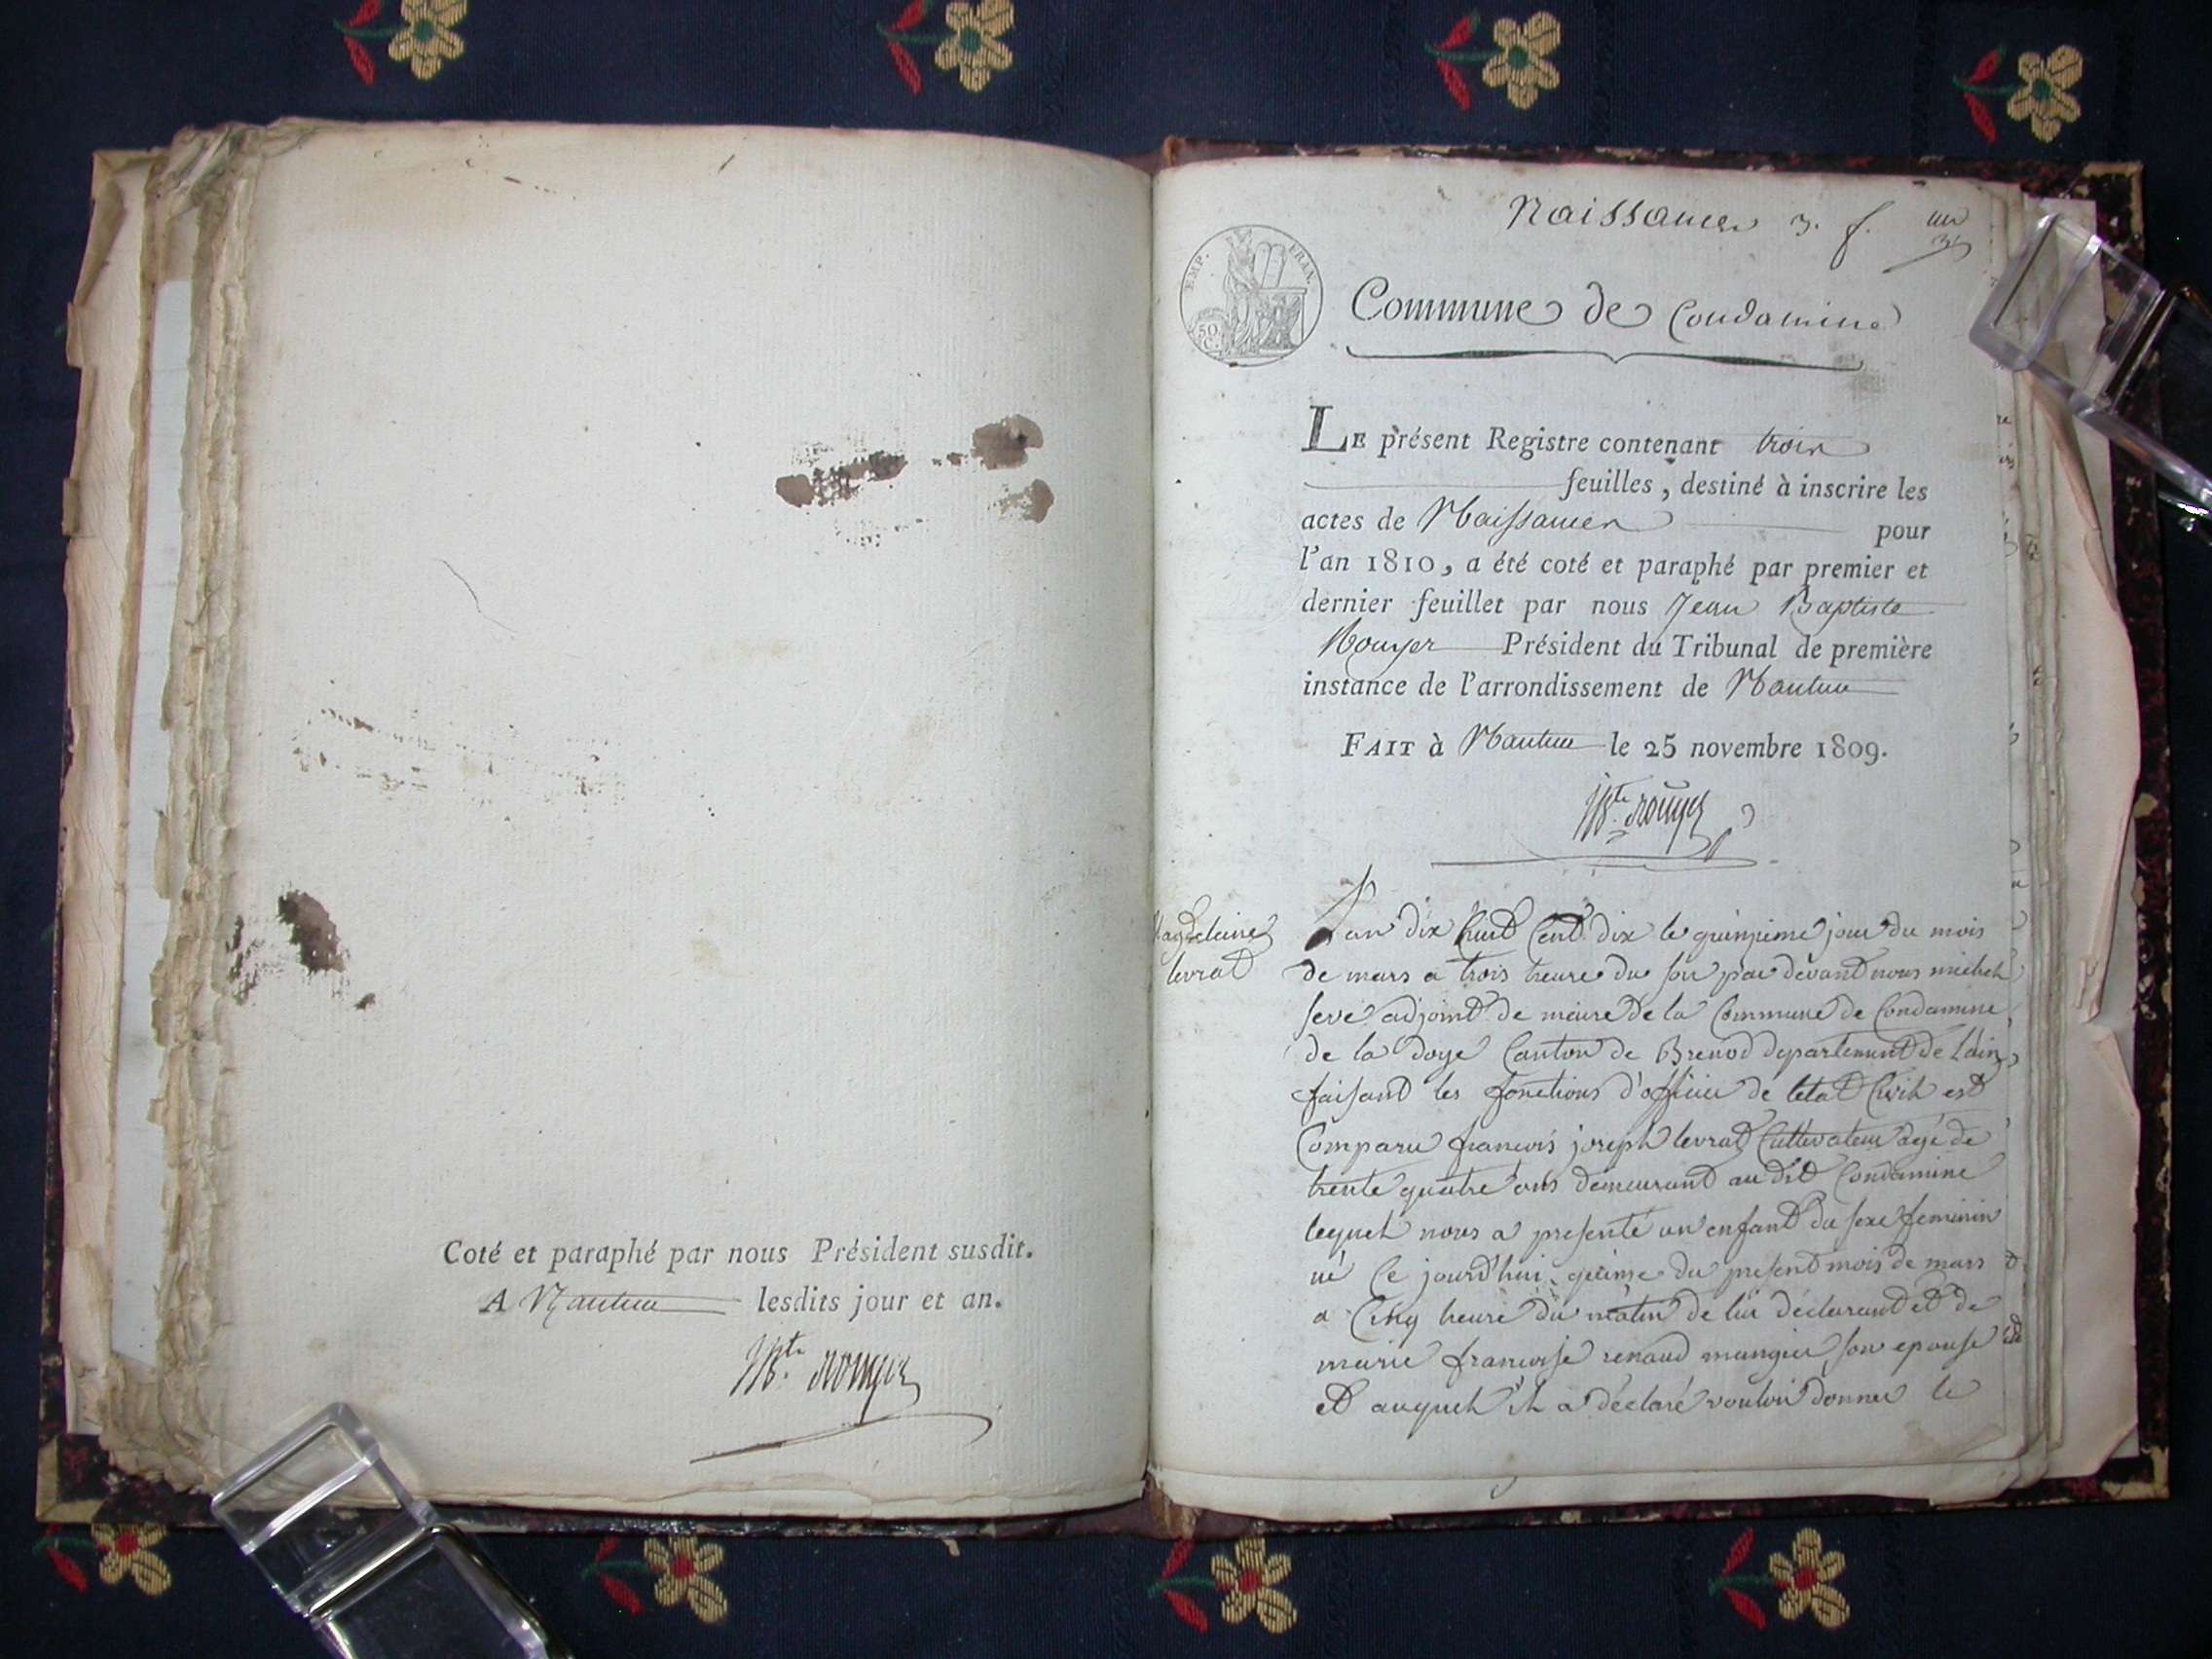 Coté et paraphé par nous Président susdit.
A Nantua lesdits jour et an.
JBte. Rouyer
Naissances 3. f. un
3
EMP. FRAN.
50
C.
Commune de Condamine
LE présent Registre contenant trois
feuilles, destiné à inscrire les
actes de Naissances pour
l'an 1810, a été coté et paraphé par premier et
dernier feuillet par nous Jean Baptiste
Rouyer Président du Tribunal de première
instance de l'arrondissement de Nantua
FAIT à Nantua le 25 novembre 1809.
JBte. Rouyer
Magdelaine
levrat
Lan dix huit Cent dix le quinzieme jour du mois
de mars a trois heure du soir par devant nous michel
seve adjoint de maire de la Commune de Condamine
de la doye Canton de Brenod departement de Lain
faisant les fonctions d'officier de letat Civil est
Comparu francois joseph levrat Cultivateur agé de
trente quatre ans demeurant au dit Condamine
lequel nous a presenté un enfant du sexe feminin
né Ce jourd'hui quinze du present mois de mars
a Cinq heure du matin de lui déclarant et de
marie francoise renaud mangier son epouse
et auquel il a déclaré vouloir donner le